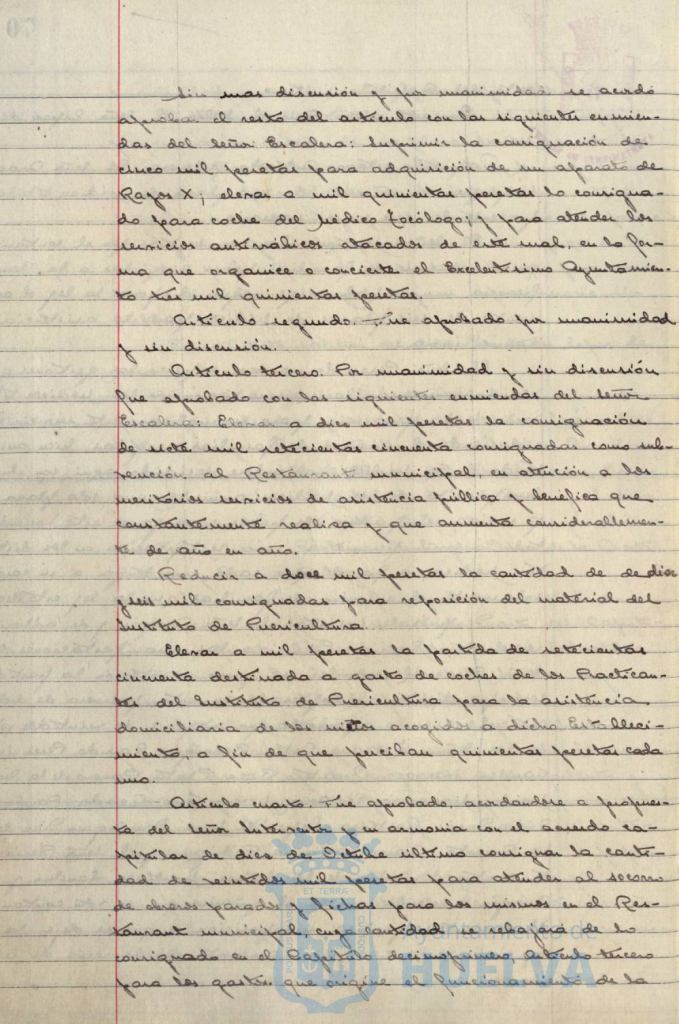 Sin mas discusión y por unanimidad se acordó
aprobar el resto del artículo con las siguientes enmien-
das del Señor Escalera: Suprimir la consignación de
cinco mil pesetas para adquisición de un aparato de
Rayos X; elevar a mil quinientas pesetas lo consigna-
do para coche del Médico Tocólogo; y para atender los
servicios antirrábicos atacados de este mal, en la for-
ma que organice o concierte el Excelentísimo Ayuntamien-
to tres mil quinientas pesetas.
Artículo segundo. Fue aprobado por unanimidad
y sin discusión.
Artículo tercero. Por unanimidad y sin discusión
fue aprobado con las siguientes enmiendas del Señor
Escalera: Elevar a diez mil pesetas la consignación
de siete mil setecientas cincuenta consignadas como sub-
vención al Restaurant municipal, en atención a los
meritorios servicios de asistencia pública y benéfica que
constantemente realiza y que aumenta considerablemen-
te de año en año.
Reducir a doce mil pesetas la cantidad de de diez
y seis mil consignadas para reposición del material del
Instituto de Puericultura.
Elevar a mil pesetas la partida de setecientas
cincuenta destinada a gasto de coches de los Practican-
tes del Instituto de Puericultura para la asistencia
domiciliaria de los niños acogidos a dicho Estableci-
miento, a fin de que perciban quinientas pesetas cada
uno.
Artículo cuarto. Fue aprobado, acordándose a propues-
ta del Señor Interventor y en armonía con el acuerdo ca-
pitular de diez de Octubre último consignar la canti-
dad de veintidos mil pesetas para atender al socorro
de obreros parados y fichas para los mismos en el Res-
taurant municipal, cuya cantidad se rebajará de lo
consignado en el Capítulo decimoprimero, Artículo tercero
para los gastos que origine el funcionamiento de la
Ayuntamiento de
HUELVA